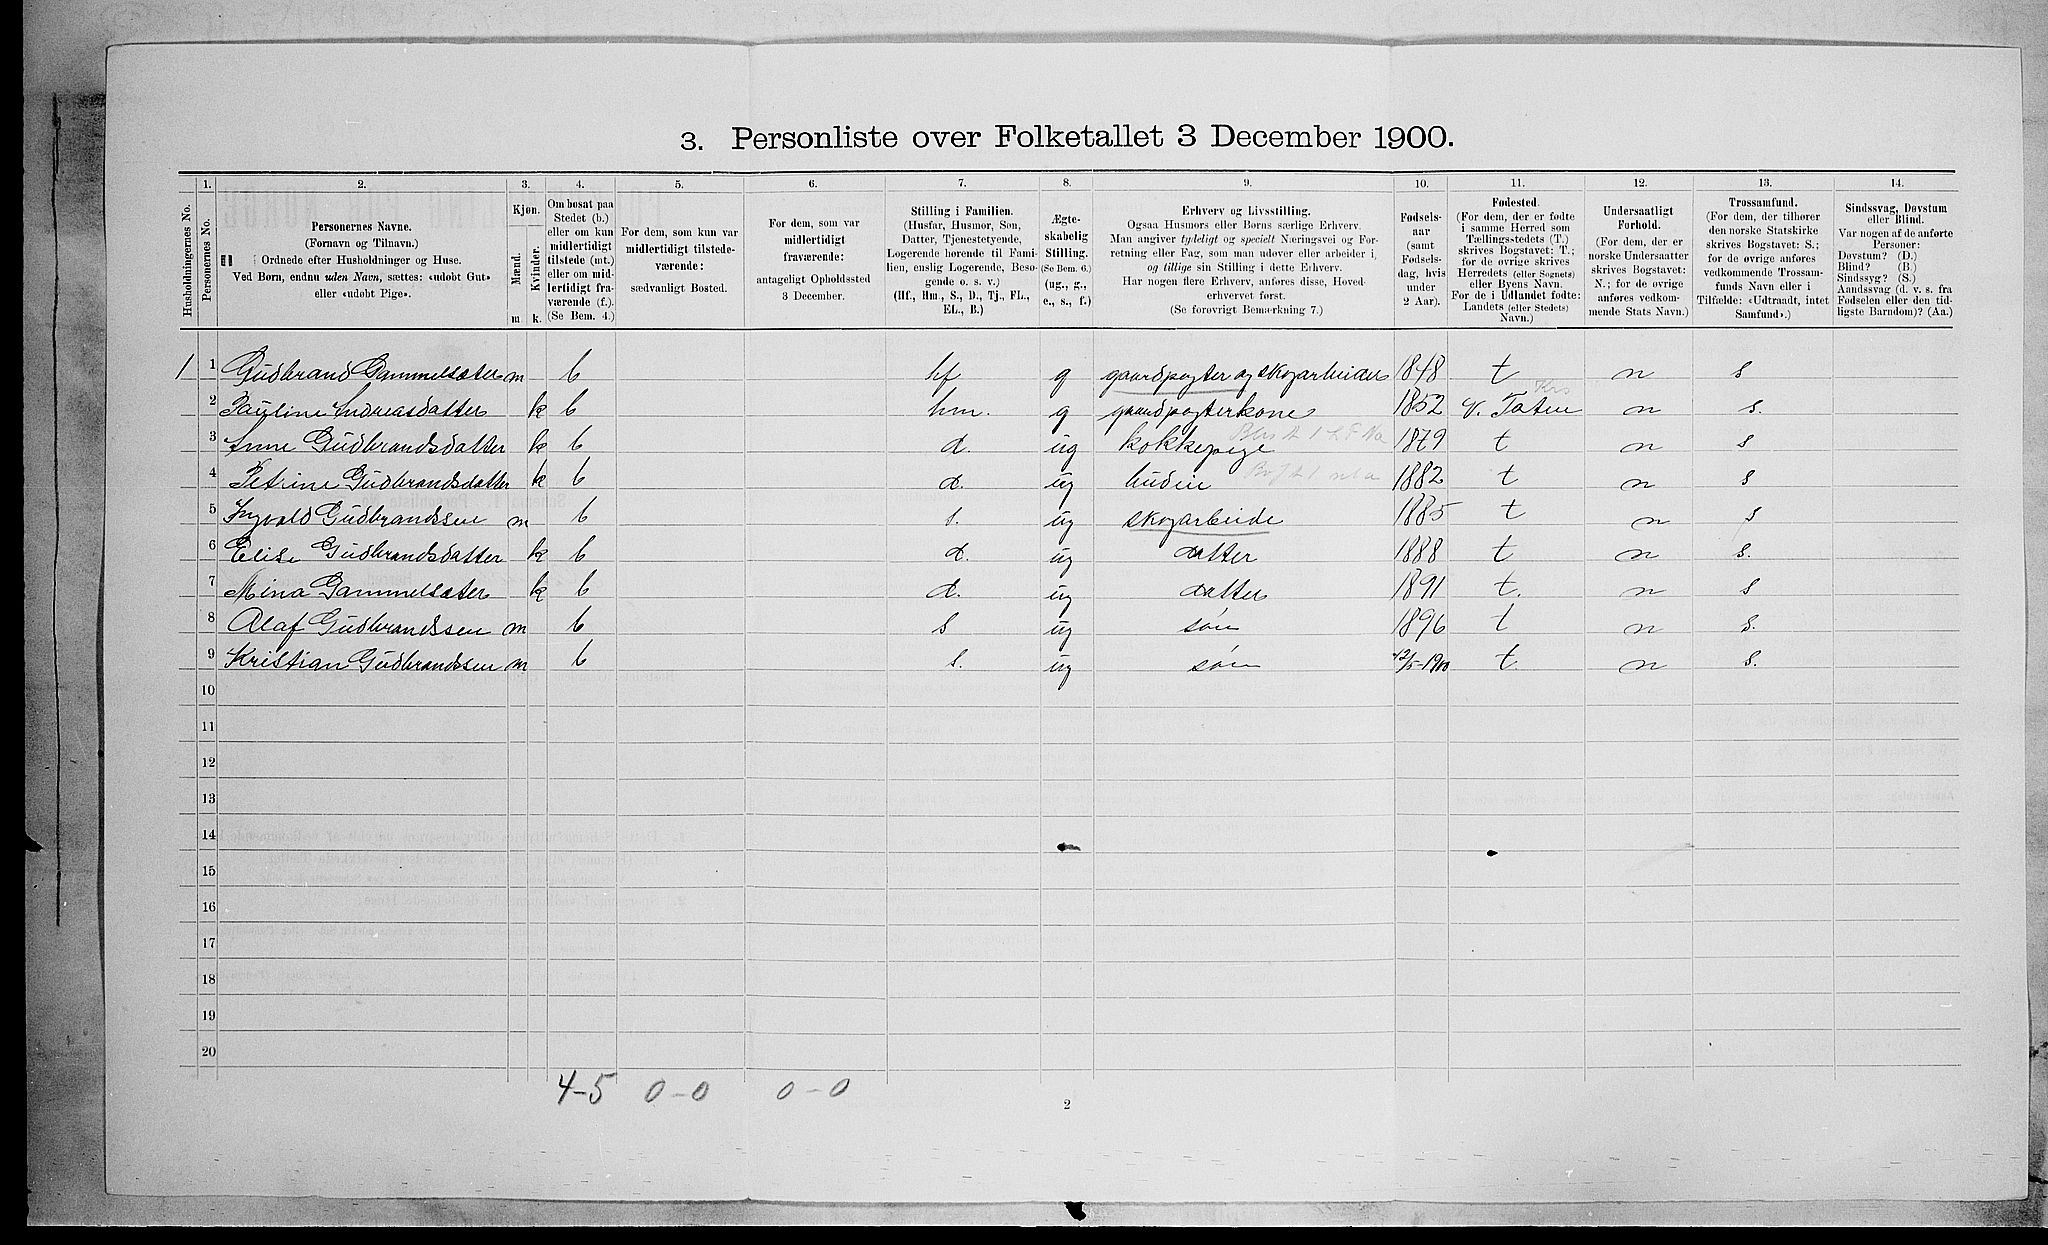 3. Personliste over Folketallet 3 December 1900.
Husholdningernes No.
1.
Personernes No.
2.
Personernes Navne.
(Fornavn og Tilnavn.)
Ordnede efter Husholdninger og Huse.
Ved Børn, endnu uden Navn, sættes: «udøbt Gut»
eller «udøbt Pige».
3.
Kjøn.
Mænd.
Kvinder.
m
k.
4.
Om bosat paa
Stedet (b.)
eller om kun
midlertidigt
tilstede (mt.)
eller om mid-
lertidigt fra-
værende (f.).
(Se Bem. 4.)
5.
For dem, som kun var
midlertidigt tilstede-
værende:
sædvanligt Bosted.
6.
For dem, som var
midlertidigt
fraværende:
antageligt Opholdssted
3 December.
7.
Stilling i Familien.
(Husfar, Husmor, Søn,
Datter, Tjenestetyende,
Logerende hørende til Fami-
lien, enslig Logerende, Besø-
gende o. s. v.)
(Hf., Hm., S., D., Tj., FL.,
EL., B.)
8.
Ægte-
skabelig
Stilling.
(Se Bem. 6.)
(ug., g.,
e., s., f.)
9.
Erhverv og Livsstilling.
Ogsaa Husmors eller Børns særlige Erhverv.
Man angiver tydeligt og specielt Næringsvei og For-
retning eller Fag, som man udøver eller arbeider i,
og tillige sin Stilling i dette Erhverv.
Har nogen flere Erhverv, anføres disse, Hoved-
erhvervet først.
(Se forøvrigt Bemærkning 7.)
10.
Fødsels-
aar
(samt
Fødsels-
dag, hvis
under
2 Aar).
11.
Fødested.
(For dem, der er fødte
i samme Herred som
Tællingsstedets (T.)
skrives Bogstavet: T.;
for de øvrige skrives
Herredets (eller Sognets)
eller Byens Navn.
For de i Udlandet fødte:
Landets (eller Stedets)
Navn.)
12.
Undersaatligt
Forhold.
(For dem, der er
norske Undersaatter
skrives Bogstavet:
N.; for de øvrige
anføres vedkom-
mende Stats Navn.)
13.
Trossamfund.
(For dem, der tilhører
den norske Statskirke
skrives Bogstavet: S.;
for de øvrige anføres
vedkommende Trossam-
funds Navn eller i
Tilfælde: «Udtraadt, intet
Samfund».)
14.
Sindssvag, Døvstum
eller Blind.
Var nogen af de anførte
Personer:
Døvstum? (D.)
Blind? (B.)
Sindssyg? (S.)
Aandssvag (d. v. s. fra
Fødselen eller den tid-
ligste Barndom)? (Aa.)
1 1 Gudbrand Gammelsæter m b hf g gaardpagter og skogarbeider 1848 t n s
2 Pauline Andreasdatter k b hm. g gaardpagterkone 1852 V. Toten Krs n s.
3 Anne Gudbrandsdatter k b d. ug kokkepige 1879 t n s
4 Petrine Gudbrandsdatter k b d. ug budeie 1882 t n s
5 Ingvald Gudbrandssen m b s. ug skogarbeide 1885 t n s
6 Elise Gudbrandsdatter k b d. ug datter 1888 t n s.
7 Mina Gammelsæter k b d. ug datter 1891 t. n s
8 Olaf Gudbrandssen m b s ug søn 1896 t n s.
9 Kristian Gudbrandssen m b s. ug søn 12/5-1900 t. n s.
10
11
12
13
14
15
16
17
18
19
20
4-5 0-0 0-0
2